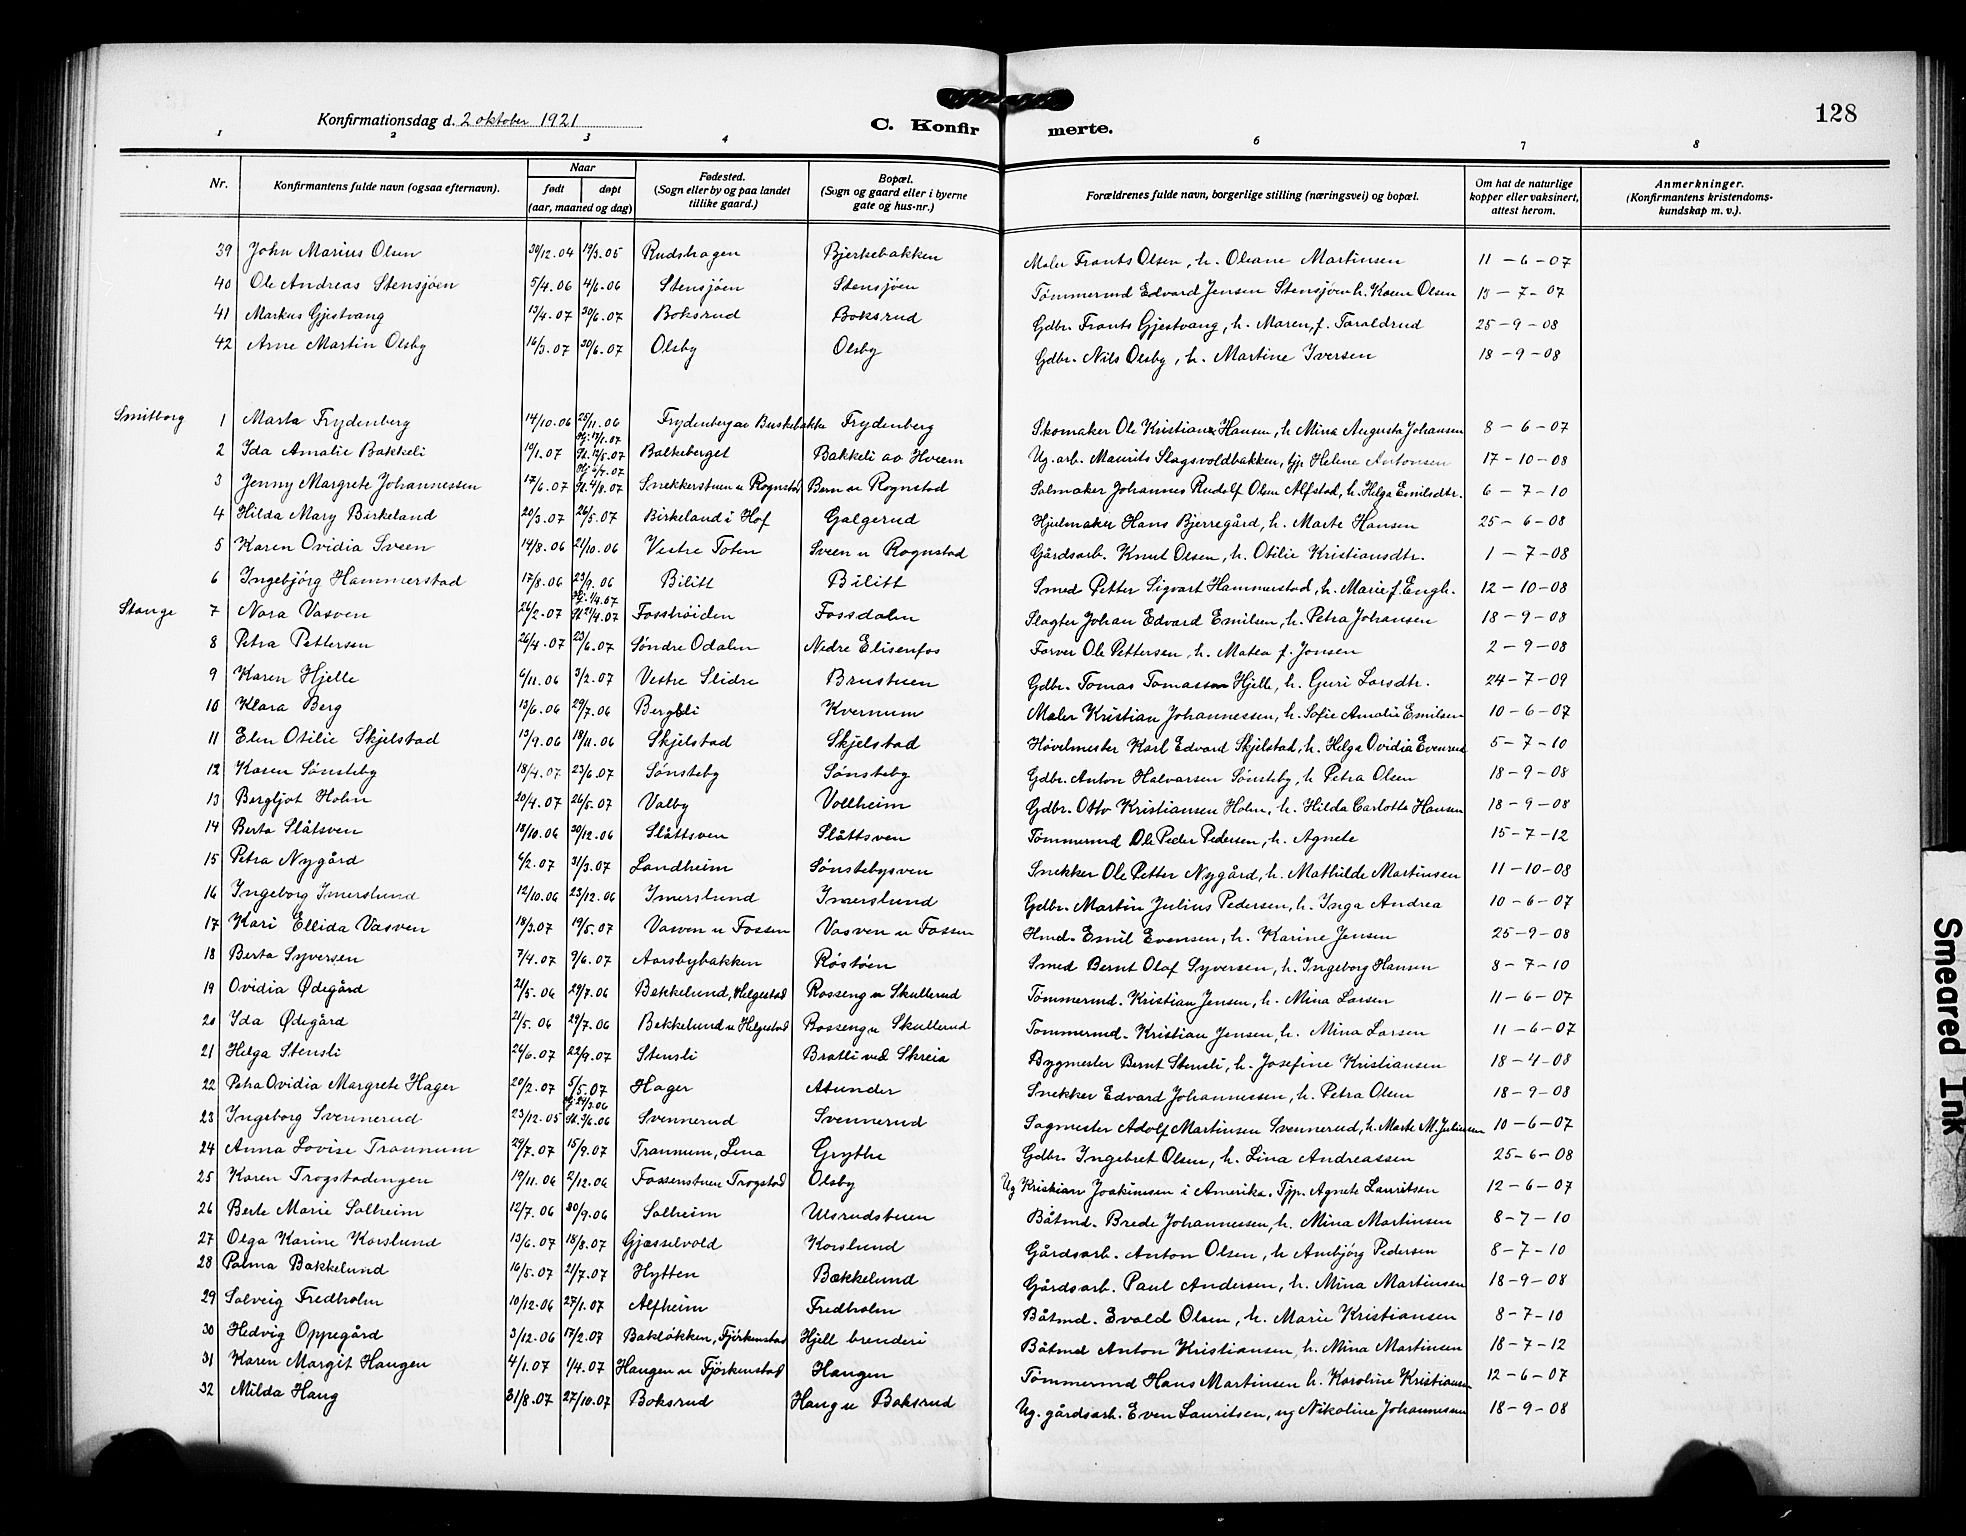 128
Konfirmationsdag d. 2 oktober 1921
C. Konfirmerte.
1 2 3 4 6 7 8
Nr. Konfirmantens fulde navn (ogsaa efternavn). Naar født døpt (aar, maaned og dag) Fødested. (Sogn eller by og paa landet tillike gaard.) Bopæl. (Sogn og gaard eller i byerne gate og hus-nr.) Forældrenes fulde navn, borgerlige stilling (næringsvei) og bopæl. Om hat de naturlige kopper eller vaksinert, attest herom. Anmerkninger. (Konfirmantens kristendomskundskap m. v.).
39 John Marius Olsen 30/12.04 19/3.05 Rudshagen Bjerkebakken Maler Frants Olsen, h. Oleane Martinsen 11-6-07
40 Ole Andreas Stensjöen 5/4.06 4/6.06 Stensjöen Stensjöen Tömmermd Edvard Jensen Stensjöen h. Karen Olsen 13-7-07
41 Markus Gjestvang 13/4.07 30/6.07 Boksrud Boksrud Gdbr. Frants Gjestvang, h. Maren, f. Faraldrud 25-9-08
42 Arne Martin Olsby 16/3.07 30/6.07 Olsby Olsby Gdbr. Nils Olsby, h. Martine Iversen 18-9-08
Smitborg 1 Marta Frydenberg 14/10.06 25/11.06 Frydenberg av Buskebakke Frydenberg Skomaker Ole Kristian Hansen, h Mina Augusta Johansen 8-6-07
2 Ida Amalie Bakkeli 19/1.07 Hj. 17/1.07 St. 12/5.07 Balkeberget Bakkeli av Hveem Ug. arb. Maurits Slagsvoldbakken, tjp Helene Antonsen 17-10-08
3 Jenny Margrete Johannessen 17/6.07 St. 4/8.07 Snekkerstuen u Rognstad Bern u Rognstad Salmaker Johannes Rudolf Olsen Alfstad, h. Helga Emilsdtr. 6-7-10
4 Hilda Mary Birkeland 20/3.07 26/5.07 Birkeland i Hof Galgerud Hjulmaker Hans Bjerregård, h. Marte Hansen 25-6-08
5 Karen Ovidia Sveen 14/8.06 21/10.06 Vestre Toten Sveen u Rognstad Gårdsarb. Knut Olsen, h. Otilie Kristiansdtr. 1-7-08
6 Ingebjörg Hammerstad 17/8.06 23/9.06 Bilitt Bilitt Smed Petter Sigvart Hammerstad, h. Marie f. Engh. 12-10-08
Stange 7 Nora Vasven 26/2.07 Hj. 1/4.07 St 21/4.07 Fosströiden Fossdalen Slagter Johan Edvard Emilsen, h. Petra Johansen 18-9-08
8 Petra Pettersen 26/4.07 23/6.07 Söndre Odalen Nedre Elisenfos Farver Ole Pettersen, h. Matea f. Jonsen 2-9-08
9 Karen Hjelle 6/11.06 3/2.07 Vestre Slidre Brustuen Gdbr. Tomas Tomassen Hjelle, h. Guri Larsdtr. 24-7-09
10 Klara Berg 13/6.06 29/7.06 Bergli Kvernum Maler Kristian Johannessen, h. Sofie Amalie Emilsen 10-6-07
11 Elen Otilie Skjelstad 13/9.06 18/11.06 Skjelstad Skjelstad Hövelmester Karl Edvard Skjelstad, h. Helga Ovidia Evenrud 5-7-10
12 Karen Sönsteby 18/4.07 23/6.07 Sönsteby Sönsteby Gdbr. Anton Halvorsen Sönsteby, h Petra Olsen 18-9-08
13 Bergljot Holm 20/4.07 26/5.07 Valby Vollheim Gdbr. Otto Kristiansen Holm, h. Hilda Carlotte Hansen 18-9-08
14 Berta Slåtsven 18/10.06 30/12.06 Slåttsven Slåttsven Tömmermd Ole Peder Pedersen, h. Agnete 15-7-12
15 Petra Nygård 6/2.07 31/3.07 Landheim Sönstebysven Snekker Ole Petter Nygård, h. Mathilde Martinsen 11-10-08
16 Ingeborg Imerslund 12/10.06 23/12.06 Imerslund Imerslund Gdbr. Martin Julius Pedersen, h. Inga Andrea 10-6-07
17 Kari Ellida Vasven 18/3.07 19/5.07 Vasven u Fossen Vasven u Fossen Hmd. Emil Evensen, h. Karine Jensen 25-9-08
18 Berta Syversen 7/4.07 9/6.07 Aarsbybakken Röstöen Smed Bernt Olaf Syversen, h. Ingeborg Hansen 8-7-10
19 Ovidia Ødegård 21/5.06 29/7.06 Bekkelund, Helgestad Rosseng u Skullerud Tömmermd. Kristian Jensen, h. Mina Larsen 11-6-07
20 Ida Ødegård 21/5.06 29/7.06 Bekkelund u Helgestad Rosseng u Skullerud Tömmermd. Kristian Jensen, h. Mina Larsen 11-6-07
21 Helga Stensli 26/6.07 22/9.07 Stensli Bratli ved Skreia Bygmester Bernt Stensli, h. Josefine Kristiansen 18-4-08
22 Petra Ovidia Margrete Hager 20/2.07 5/5.07 Hager Asunder Snekker Edvard Johannessen, h. Petra Olsen 18-9-08
23 Ingeborg Svennerud 23/12.05 St. 3/6.06 Svennerud Svennerud Sagmester Adolf Martinsen Svennerud, h. Marte M. Juliussen 10-6-07
24 Anna Lovise Trannum 29/7.07 15/9.07 Trannum, Lena Grythe Gdbr. Ingebret Olsen, h. Lina Andreassen 25-6-08
25 Karen Trogstadengen 19/11.06 2/12.06 Fossenstuen Trogstad Olsby Ug Kristian Joakimsen i Amerika. Tjp. Agnete Lauritsen 12-6-07
26 Berte Marie Solheim 12/7.06 30/9.06 Solheim Ulsrudstuen Båtmd. Brede Johannessen, h. Mina Martinsen 8-7-10
27 Olga Karine Korslund 13/6.07 18/8.07 Gjæsselvold Korslund Gårdsarb. Anton Olsen, h Anbjörg Pedersen 8-7-10
28 Palma Bakkelund 16/5.07 21/7.07 Hytten Bækkelund Gårdsarb. Paul Andersen, h. Mina Martinsen 18-9-08
29 Solveig Fredholm 10/12.06 27/1.07 Alfheim Fredholm Båtmd. Evald Olsen, h. Marie Kristiansen 8-7-10
30 Hedvig Oppegård 3/12.06 17/2.07 Baklökken, Fjörkenstad Hjell brenderi Båtmd Anton Kristiansen, h. Mina Martinsen 18-7-12
31 Karen Margit Haugen 4/1.07 1/4.07 Haugen u Fjörkenstad Haugen Tömmermd Hans Martinsen h. Karoline Kristiansen 12-6-07
32 Milda Haug 31/8.07 27/10.07 Boksrud Haug u Boksrud Ug. gårdsarb. Even Lauritsen, ug Nikoline Johannessen 18-9-08
Smeared Ink